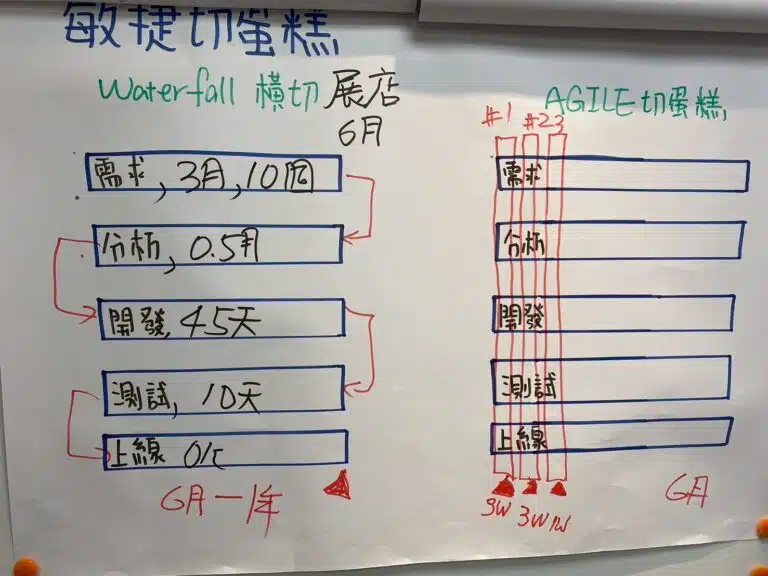 敏捷切蛋糕
Waterfall 橫切 展店
6月
需求, 3月, 10個
分析, 0.5月
開發, 45天
測試, 10天
上線 OK
6月一1年
AGILE切蛋糕
#1 #2 3
需求
分析
開發
測試
上線
3W 3W 1W
6月